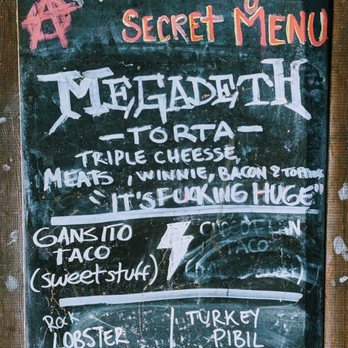 SECRET MENU
MEGADETH
- TORTA -
TRIPLE CHEESSE,
MEATS, WINNIE, BACON & TOPPING
"IT'S FUCKING HUGE"
GANSITO
TACO
(sweet stuff)
TACO
ROCK
LOBSTER
TURKEY
PIBIL